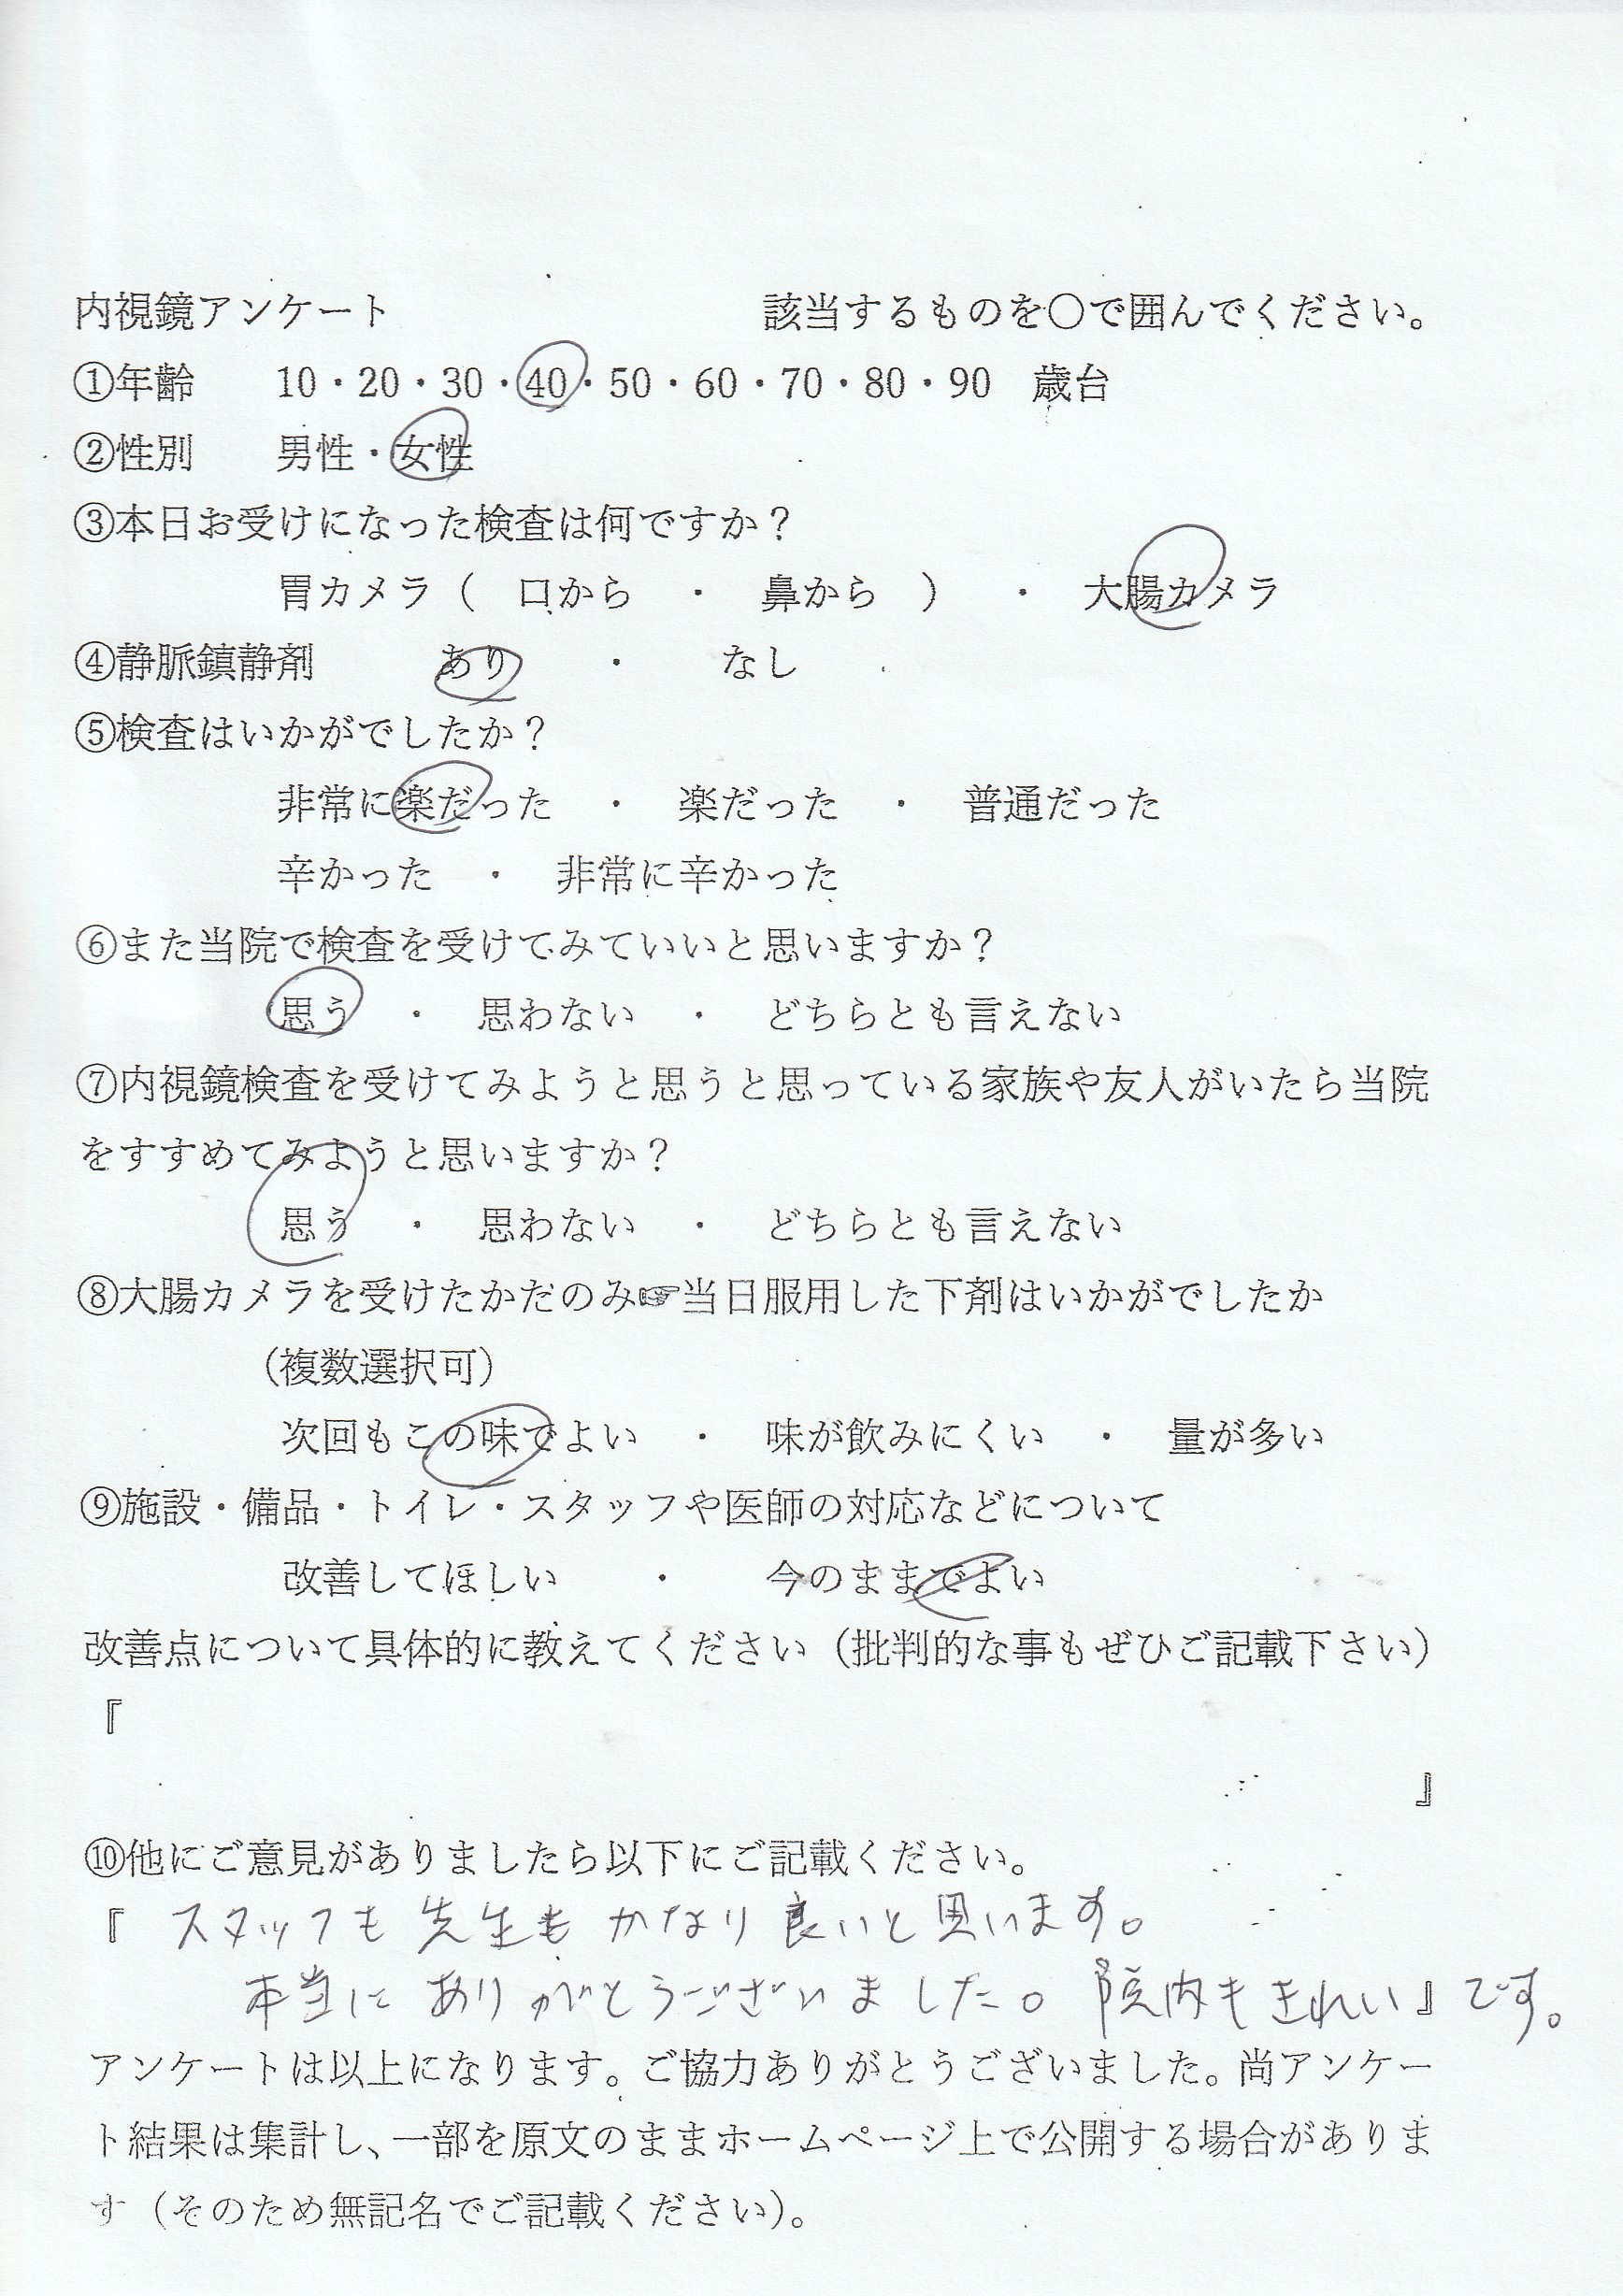 内視鏡アンケート　該当するものを〇で囲んでください。
①年齢　10・20・30・40・50・60・70・80・90　歳台
②性別　男性・女性
③本日お受けになった検査は何ですか？
胃カメラ（　口から　・　鼻から　）　・　大腸カメラ
④静脈鎮静剤　あり　・　なし
⑤検査はいかがでしたか？
非常に楽だった　・　楽だった　・　普通だった
辛かった　・　非常に辛かった
⑥また当院で検査を受けてみていいと思いますか？
思う　・　思わない　・　どちらとも言えない
⑦内視鏡検査を受けてみようと思うと思っている家族や友人がいたら当院
をすすめてみようと思いますか？
思う　・　思わない　・　どちらとも言えない
⑧大腸カメラを受けたかたのみ☞当日服用した下剤はいかがでしたか
（複数選択可）
次回もこの味でよい　・　味が飲みにくい　・　量が多い
⑨施設・備品・トイレ・スタッフや医師の対応などについて
改善してほしい　・　今のままでよい
改善点について具体的に教えてください（批判的な事もぜひご記載下さい）
『
』
⑩他にご意見がありましたら以下にご記載ください。
『 スタッフも 先生も かなり 良いと思います。
本当に ありがとうございました。院内もきれい』です。
アンケートは以上になります。ご協力ありがとうございました。尚アンケー
ト結果は集計し、一部を原文のままホームページ上で公開する場合がありま
す（そのため無記名でご記載ください）。